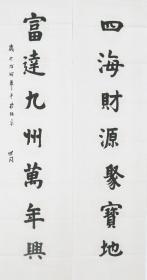 四海財源聚寶地
富達九州萬年興